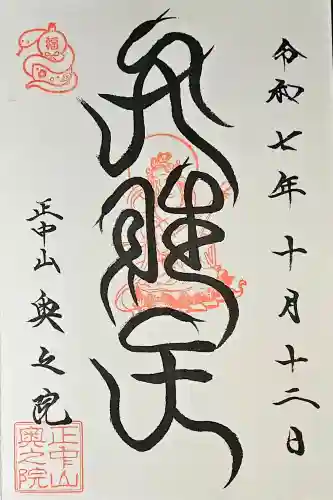 令和七年十月十二日
弁財天
正中山 奥之院
福
正中山
奥之院